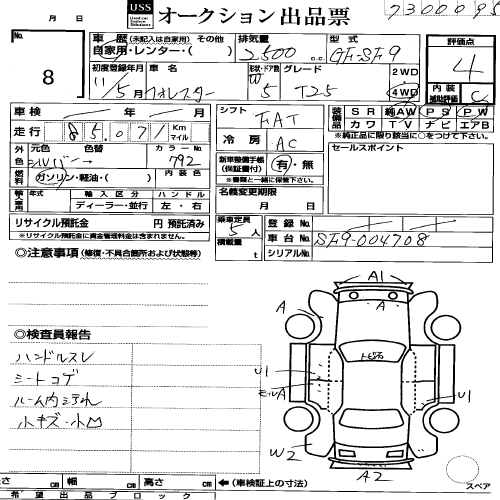 USS オークション出品票
73000
8
車歴 (未記入は自家用) その他
自家用・レンター・( )
排気量
2500 cc
型式
GF-SF9
評価点
4
初度登録年月
11/5月
車名
フォレスター
形状・ドア数
W 5
グレード
T25
2WD
4WD
内装
補助評価
C
車検 年 月
シフト
FAT
装備品
SR 純AW PS PW
カワ TV ナビ エアB
※純正品に限り該当に○をつけて下さい
走行
85,071 Km マイル
冷房
AC
セールスポイント
外色
元色 色替
シルバー→
カラーNo
792
新車整備手帳
(保証書付)
有・無
※書類と一緒に保管して下さい。
燃料
ガソリン・軽油・( )
内装色
輸入車用
年式 輸入区分 ハンドル
ディーラー・並行 左・右
名義変更期限
月 日
リサイクル預託金 円 預託済み
※リサイクル預託金に資金管理料金は含まれません。
乗車定員
5人
積載量
t
登録
車台 SF9-004708
シリアルNo
◎注意事項 (修復・不具合箇所および状態等)
A1
A A
◎検査員報告
ハンドルスレ
シートコゲ
ルーム内ヨゴレ
小キズ・小凹
U1
モールA
U1
W2
A2
スペア
さ cm 幅 cm 高さ cm ←(車検証上の寸法)
希望出品ブロック